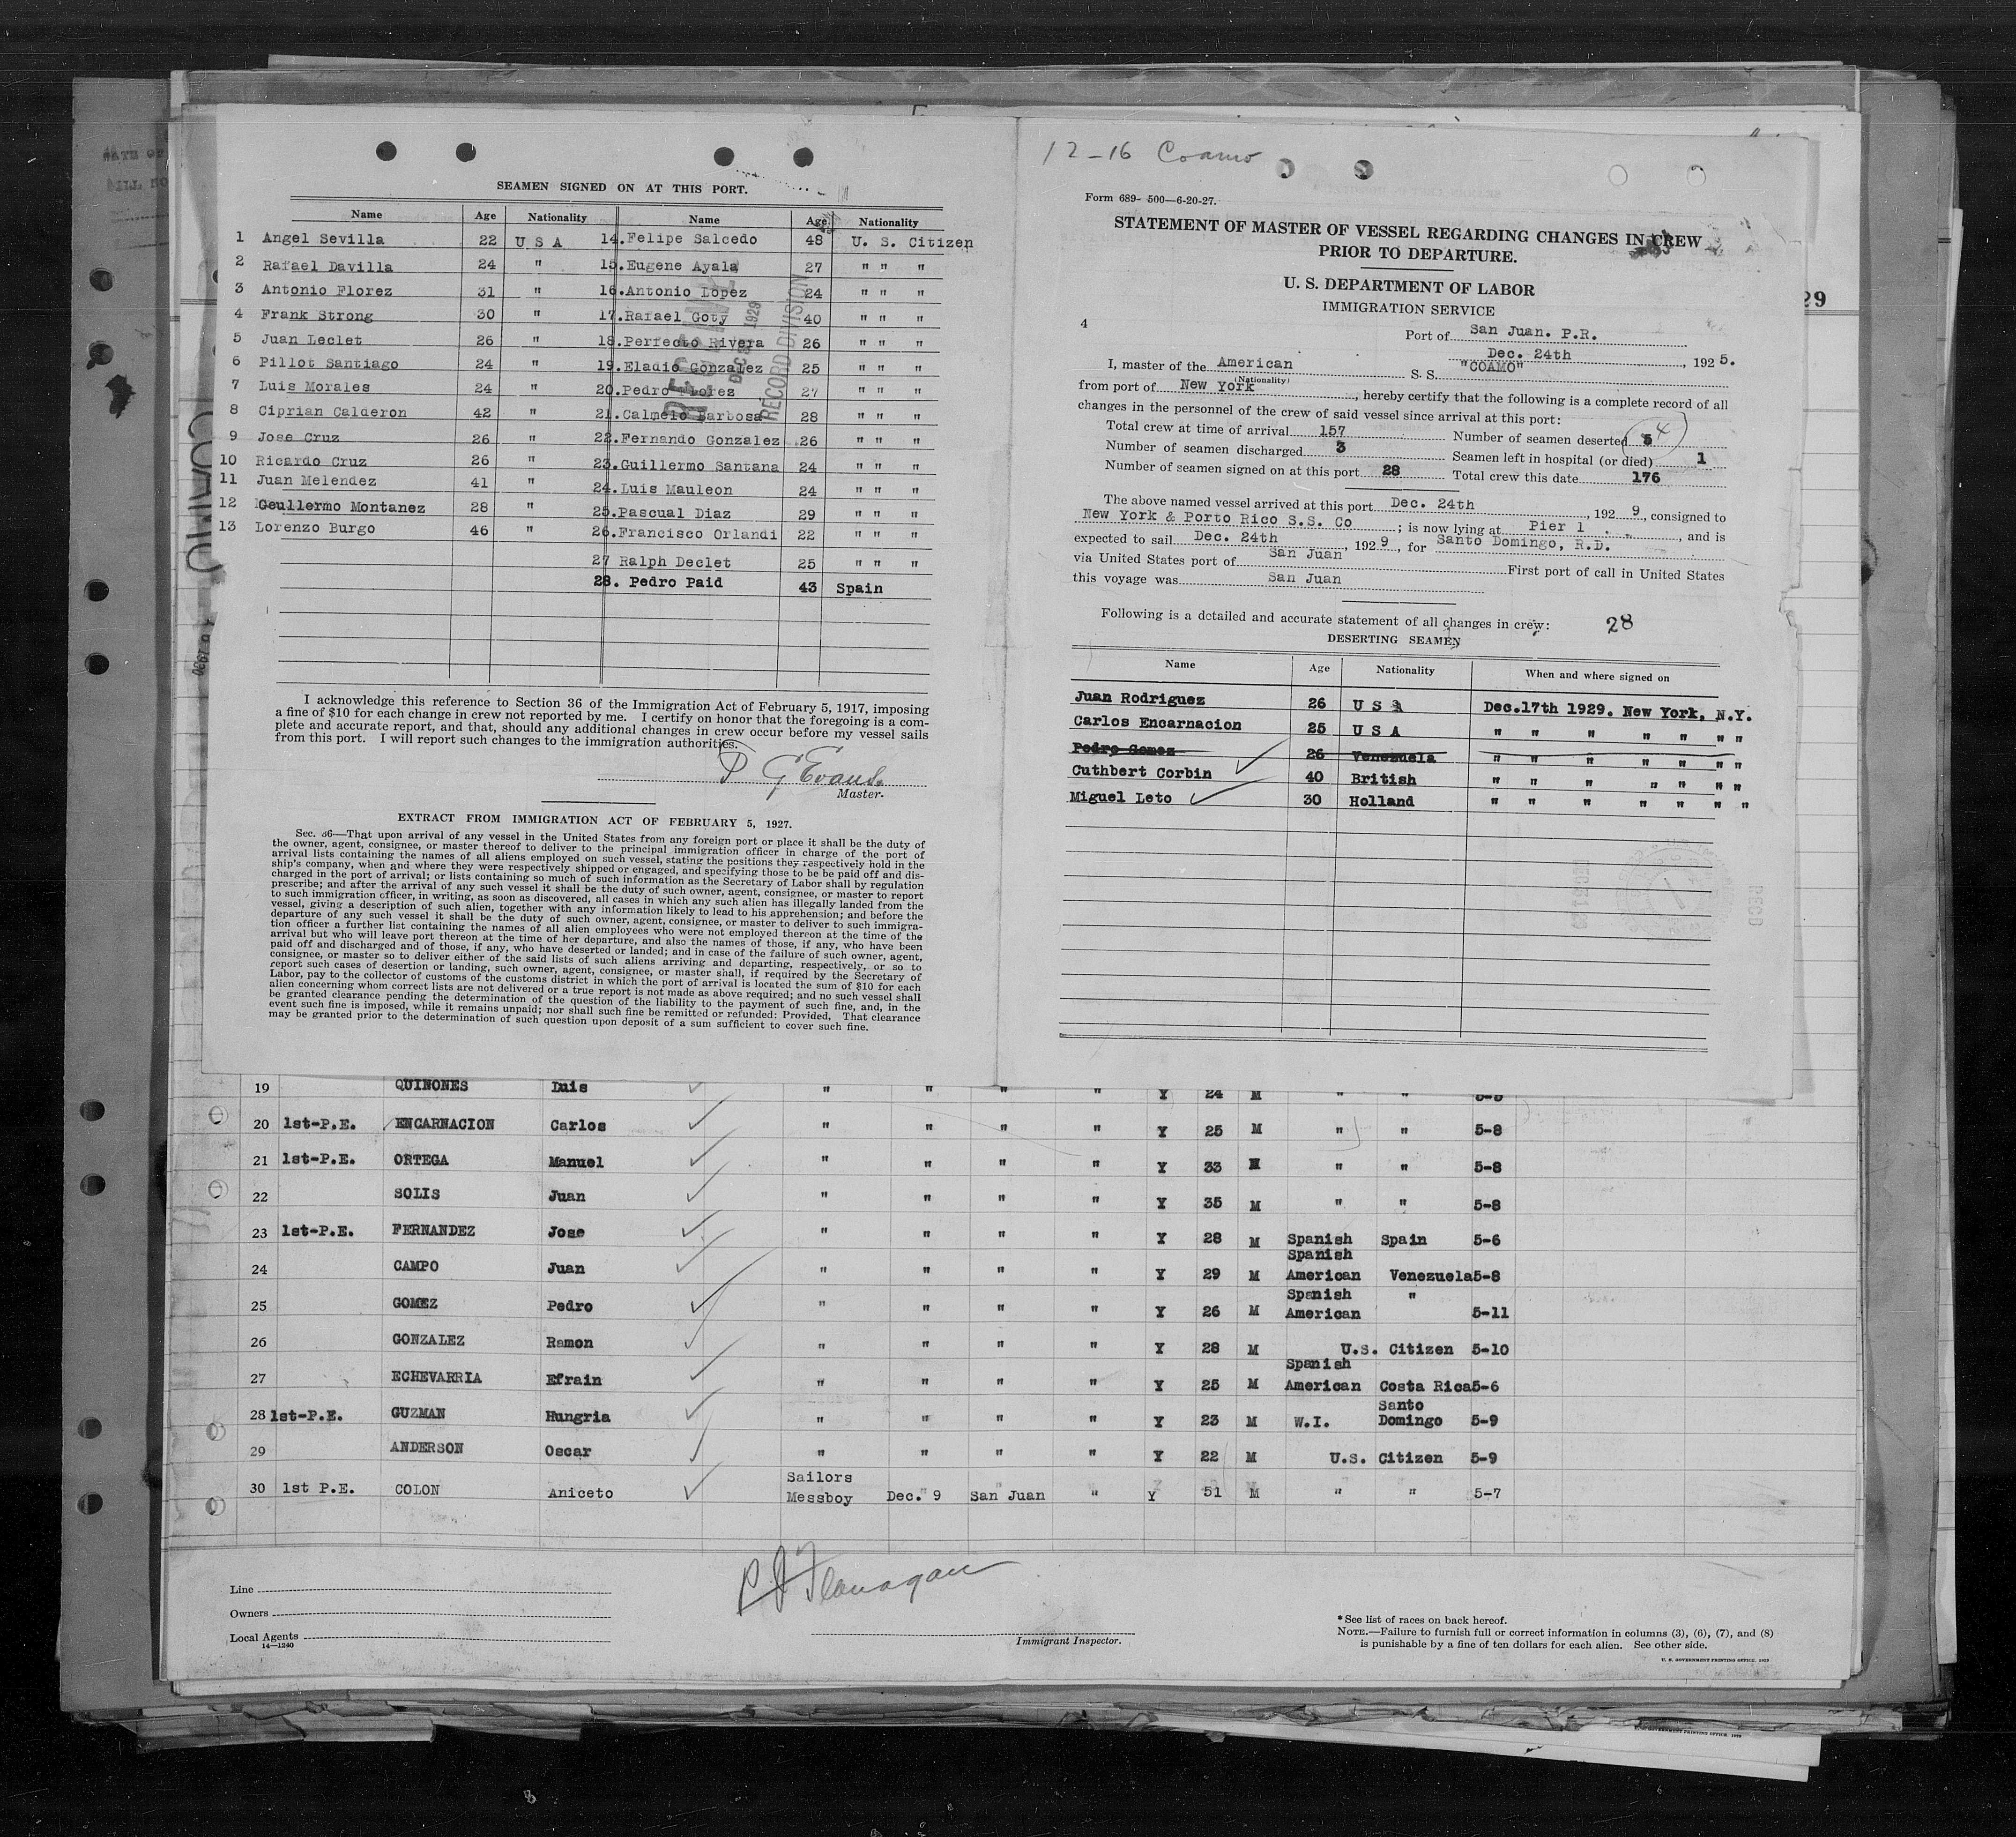 SEAMEN SIGNED ON AT THIS PORT.
Name Age Nationality Name Age Nationality
1 Angel Sevilla 22 U S A 14.Felipe Salcedo 48 U. S. Citizen
2 Rafael Davilla 24 " 15.Eugene Ayala 27 " " "
3 Antonio Florez 31 " 16.Antonio Lopez 24 " " "
4 Frank Strong 30 " 17.Rafael Goty 40 " " "
5 Juan Leclet 26 " 18.Perfecto Rivera 26 " " "
6 Pillot Santiago 24 " 19.Eladio Gonzalez 25 " " "
7 Luis Morales 24 " 20.Pedro Florez 27 " " "
8 Ciprian Calderon 42 " 21.Calmelo Barbosa 28 " " "
9 Jose Cruz 26 " 22.Fernando Gonzalez 26 " " "
10 Ricardo Cruz 26 " 23.Guillermo Santana 24 " " "
11 Juan Melendez 41 " 24.Luis Mauleon 24 " " "
12 Geullermo Montanez 28 " 25.Pascual Diaz 29 " " "
13 Lorenzo Burgo 46 " 26.Francisco Orlandi 22 " " "
27 Ralph Declet 25 " " "
28. Pedro Paid 43 Spain
1929
RECORD DIVISION
I acknowledge this reference to Section 36 of the Immigration Act of February 5, 1917, imposing
a fine of $10 for each change in crew not reported by me. I certify on honor that the foregoing is a com-
plete and accurate report, and that, should any additional changes in crew occur before my vessel sails
from this port. I will report such changes to the immigration authorities.
P G Evans
Master.
EXTRACT FROM IMMIGRATION ACT OF FEBRUARY 5, 1927.
Sec. 36—That upon arrival of any vessel in the United States from any foreign port or place it shall be the duty of
the owner, agent, consignee, or master thereof to deliver to the principal immigration officer in charge of the port of
arrival lists containing the names of all aliens employed on such vessel, stating the positions they respectively hold in the
ship's company, when and where they were respectively shipped or engaged, and specifying those to be be paid off and dis-
charged in the port of arrival; or lists containing so much of such information as the Secretary of Labor shall by regulation
prescribe; and after the arrival of any such vessel it shall be the duty of such owner, agent, consignee, or master to report
to such immigration officer, in writing, as soon as discovered, all cases in which any such alien has illegally landed from the
vessel, giving a description of such alien, together with any information likely to lead to his apprehension; and before the
departure of any such vessel it shall be the duty of such owner, agent, consignee, or master to deliver to such immigra-
tion officer a further list containing the names of all alien employees who were not employed thereon at the time of the
arrival but who will leave port thereon at the time of her departure, and also the names of those, if any, who have been
paid off and discharged and of those, if any, who have deserted or landed; and in case of the failure of such owner, agent,
consignee, or master so to deliver either of the said lists of such aliens arriving and departing, respectively, or so to
report such cases of desertion or landing, such owner, agent, consignee, or master shall, if required by the Secretary of
Labor, pay to the collector of customs of the customs district in which the port of arrival is located the sum of $10 for each
alien concerning whom correct lists are not delivered or a true report is not made as above required; and no such vessel shall
be granted clearance pending the determination of the question of the liability to the payment of such fine, and, in the
event such fine is imposed, while it remains unpaid; nor shall such fine be remitted or refunded: Provided, That clearance
may be granted prior to the determination of such question upon deposit of a sum sufficient to cover such fine.
12-16 Coamo
Form 689- 500—6-20-27.
STATEMENT OF MASTER OF VESSEL REGARDING CHANGES IN CREW
PRIOR TO DEPARTURE.
U. S. DEPARTMENT OF LABOR
IMMIGRATION SERVICE
29
4
Port of San Juan. P.R.
Dec. 24th , 192 5.
I, master of the American S. S. "COAMO"
(Nationality)
from port of New York , hereby certify that the following is a complete record of all
changes in the personnel of the crew of said vessel since arrival at this port:
Total crew at time of arrival 157 Number of seamen deserted 5 (4)
Number of seamen discharged 3 Seamen left in hospital (or died) 1
Number of seamen signed on at this port 28 Total crew this date 176
The above named vessel arrived at this port Dec. 24th , 192 9 , consigned to
New York & Porto Rico S.S. Co ; is now lying at Pier 1 , and is
expected to sail Dec. 24th , 192 9 , for Santo Domingo, R.D.
via United States port of San Juan First port of call in United States
this voyage was San Juan
Following is a detailed and accurate statement of all changes in crew: 28
DESERTING SEAMEN
Name Age Nationality When and where signed on
Juan Rodriguez 26 U S A Dec.17th 1929. New York, N.Y.
Carlos Encarnacion 25 U S A " " " " " " "
Pedro Gomez 26 Venezuela " " " " " " "
Cuthbert Corbin 40 British " " " " " " "
Miguel Leto 30 Holland " " " " " " "
19 QUINONES Luis " " " " Y 24 M " " 5-5
20 1st-P.E. ENCARNACION Carlos " " " " Y 25 M " " 5-8
21 1st-P.E. ORTEGA Manuel " " " " Y 33 M " " 5-8
22 SOLIS Juan " " " " Y 35 M " " 5-8
23 1st-P.E. FERNANDEZ Jose " " " " Y 28 M Spanish Spain 5-6
24 CAMPO Juan " " " " Y 29 M Spanish American Venezuela 5-8
25 GOMEZ Pedro " " " " Y 26 M Spanish American " 5-11
26 GONZALEZ Ramon " " " " Y 28 M U.S. Citizen 5-10
27 ECHEVARRIA Efrain " " " " Y 25 M Spanish American Costa Rica 5-6
28 1st-P.E. GUZMAN Hungria " " " " Y 23 M W.I. Santo Domingo 5-9
29 ANDERSON Oscar " " " " Y 22 M U.S. Citizen 5-9
30 1st P.E. COLON Aniceto Sailors Messboy Dec. 9 San Juan " Y 51 M " " 5-7
P J Flanagan
Line
Owners
Local Agents
14—1240
Immigrant Inspector.
*See list of races on back hereof.
NOTE.—Failure to furnish full or correct information in columns (3), (6), (7), and (8)
is punishable by a fine of ten dollars for each alien. See other side.
U. S. GOVERNMENT PRINTING OFFICE. 1929